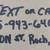 TEXT OR CA
5-993-640
ON ST. Roch